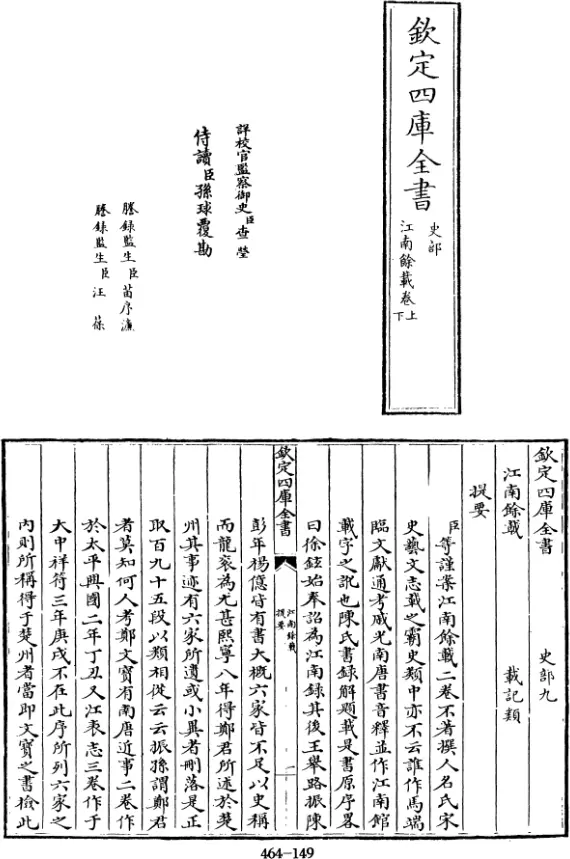 欽定四庫全書
史部
江南餘載卷上
下
詳校官監察御史臣查瑩
侍讀臣孫球覆勘
謄錄監生臣苗序濂
謄錄監生臣汪葆
欽定四庫全書
史部九
江南餘載
載記類
提要
臣等謹案江南餘載二卷不著撰人名氏宋
史藝文志載之霸史類中亦不云誰作馬端
臨文獻通考戚光南唐書音釋並作江南館
載字之訛也陳氏書録解題載是書原序畧
曰徐鉉始奉詔為江南録其後王舉路振陳
欽定四庫全書
江南餘載
提要
一
彭年楊億皆有書大概六家皆不足以史稱
而龍衮為尤甚熙寧八年得鄭君所述於楚
州其事迹有六家所遺或小異者刪落是正
取百九十五段以類相從云云振孫謂鄭君
者莫知何人考鄭文寶有南唐近事二卷作
於太平興國二年丁丑又江表志三卷作于
大中祥符三年庚戌不在此序所列六家之
內則所稱得于楚州者當即文寶之書檢此
464-149